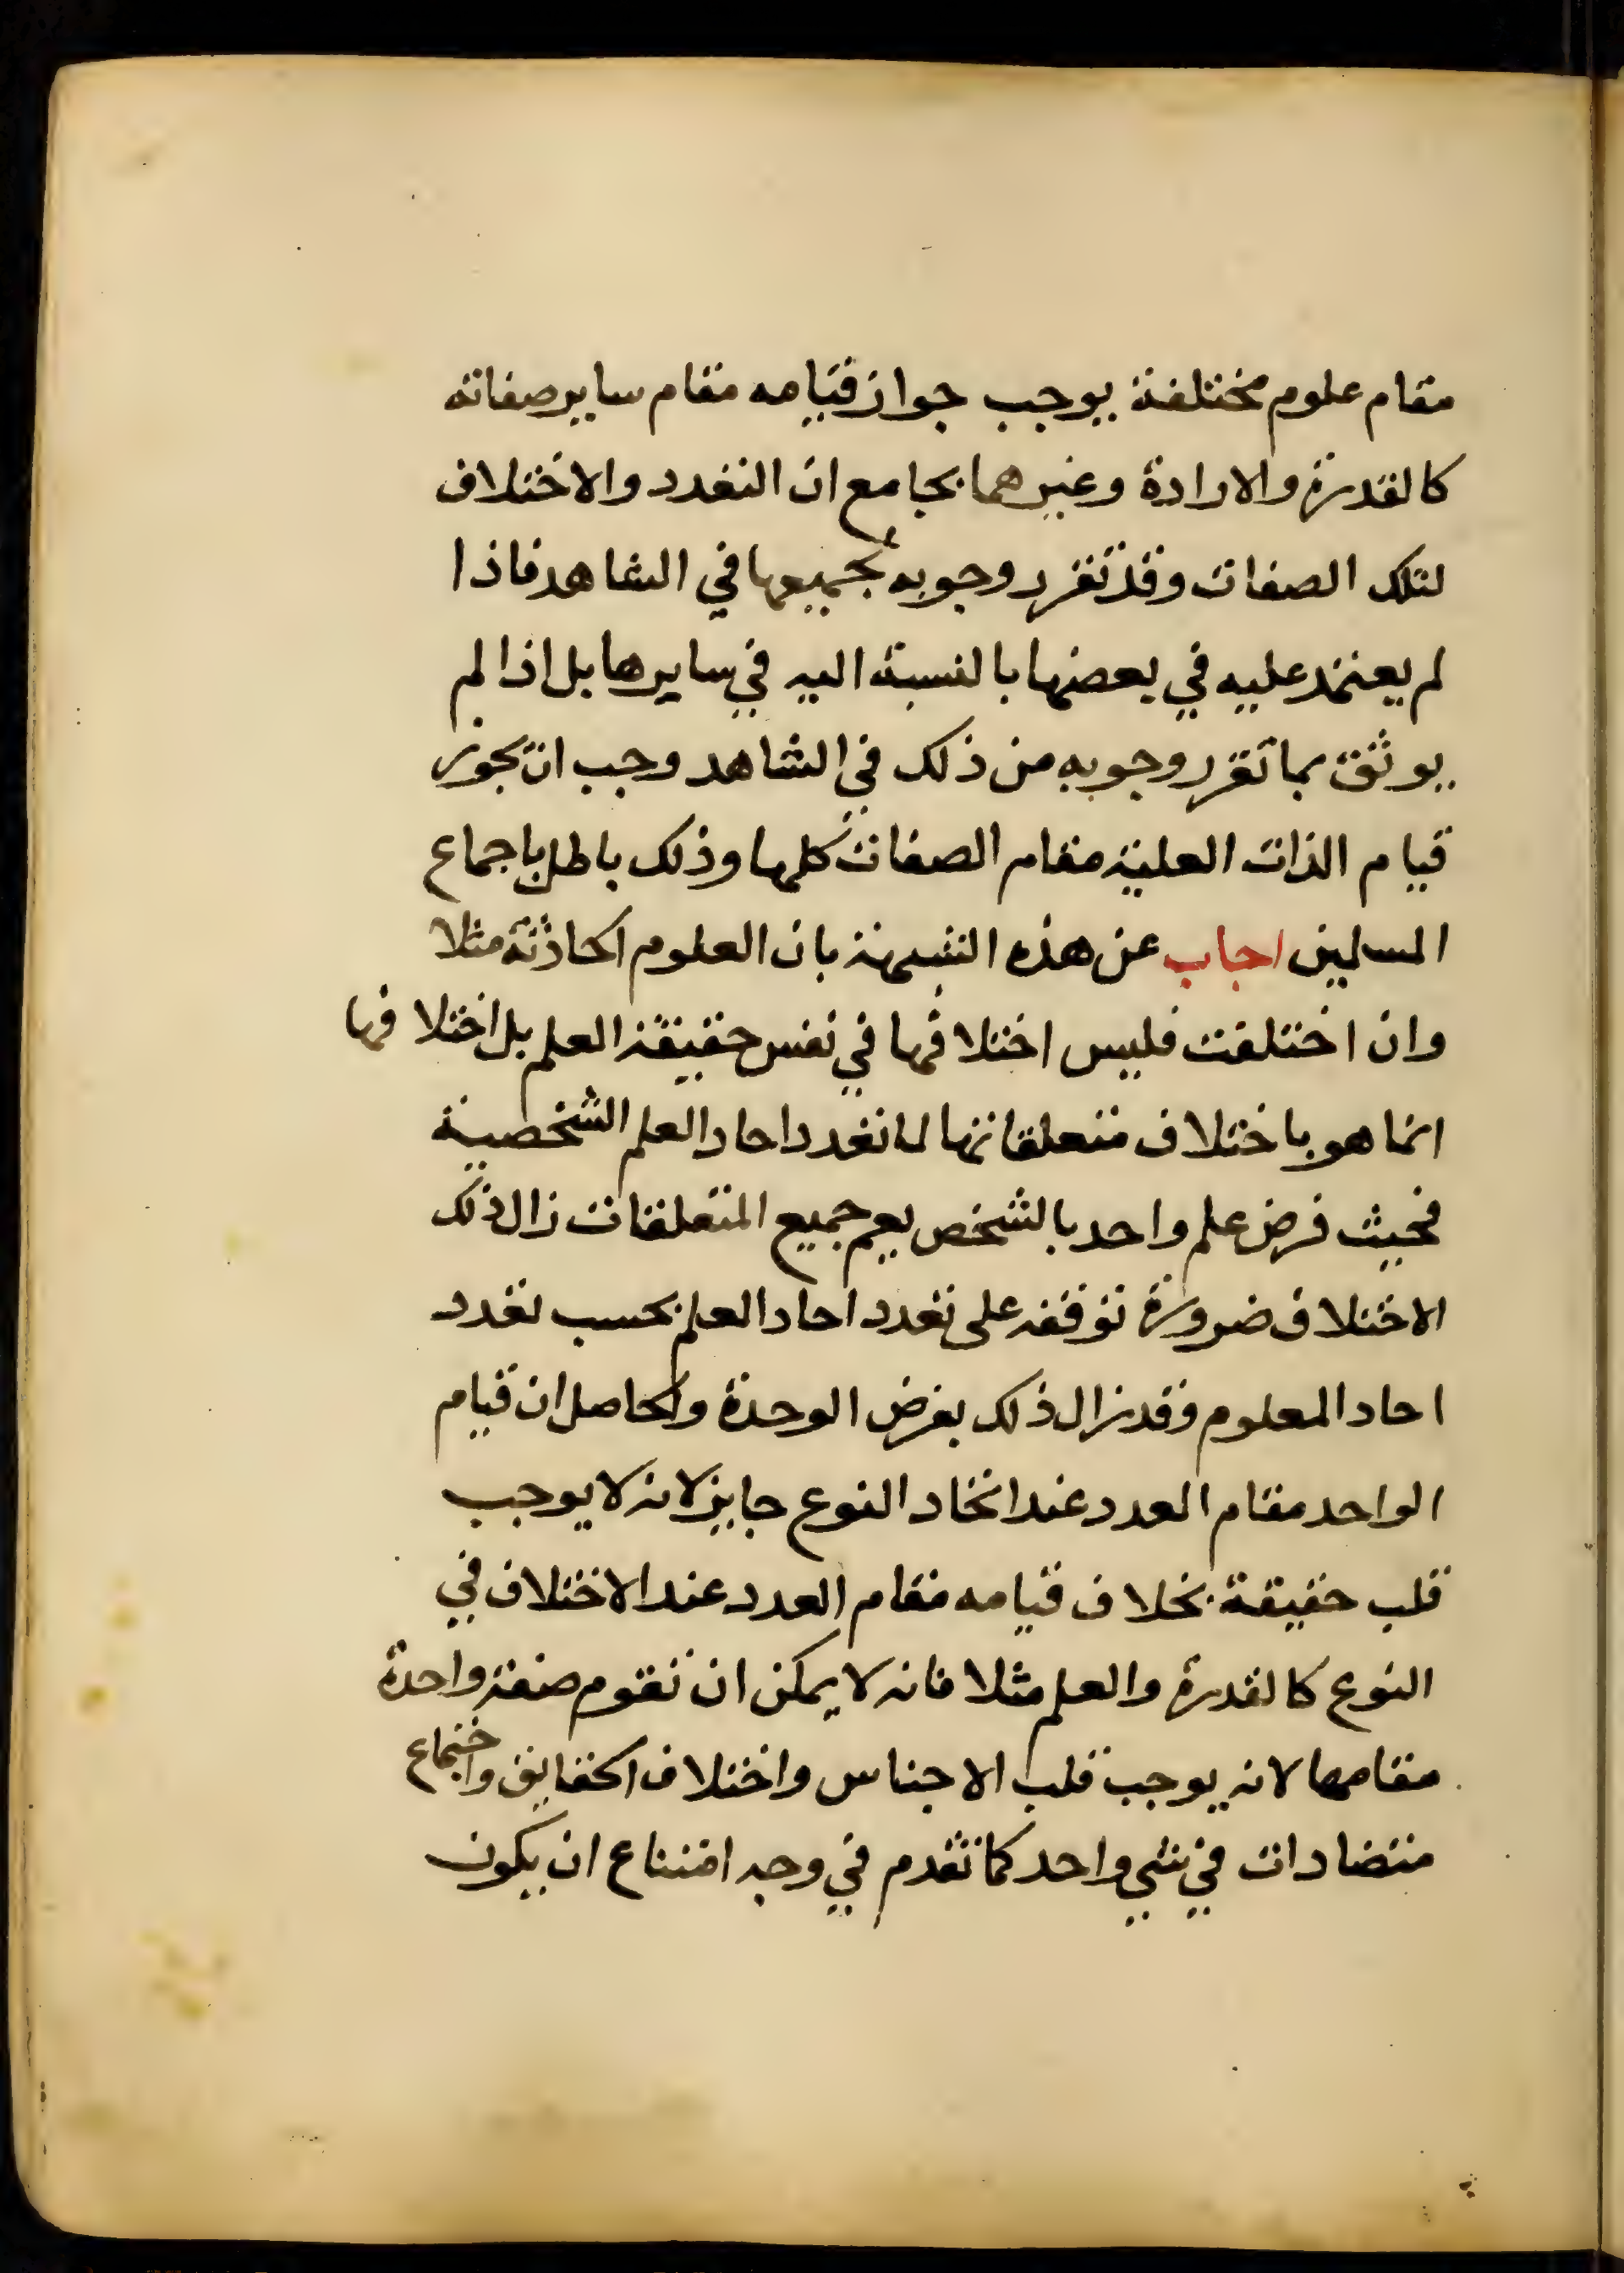 مقام علوم مختلفة يوجب جواز قيامه مقام ساير صفاته
كالقدرة والارادة وغيرهما بجامع ان التعدد والاختلاف
لتلك الصفات وقد تقرر وجوبه لجميعها في الشاهد فاذا
لم يعتمد عليه في بعضها بالنسبة اليه في سايرها بل اذا لم
يوثق بما تقرر وجوبه من ذلك في الشاهد وجب ان يجوز
قيام الذات العلية مقام الصفات كلها وذلك باطل باجماع
المسلمين اجاب عن هذه الشبهة بان العلوم الحادثة مثلا
وان اختلفت فليس اختلافها في نفس حقيقة العلم بل اختلافها
انما هو باختلاف متعلقاتها لما تعدد احاد العلم الشخصية
فحيث فرض علم واحد بالشخص يعم جميع المتعلقات زال ذلك
الاختلاف ضرورة توقفه على تعدد احاد العلم بحسب تعدد
احاد المعلوم وقد زال ذلك بفرض الوحدة والحاصل ان قيام
الواحد مقام العدد عند اتحاد النوع جايز لانه لا يوجب
قلب حقيقة بخلاف قيامه مقام العدد عند الاختلاف في
النوع كالقدرة والعلم مثلا فانه لا يمكن ان تقوم صفة واحدة
مقامهما لانه يوجب قلب الاجناس واختلاف الحقايق واجتماع
متضادات في شي واحد كما تقدم في وجه امتناع ان يكون